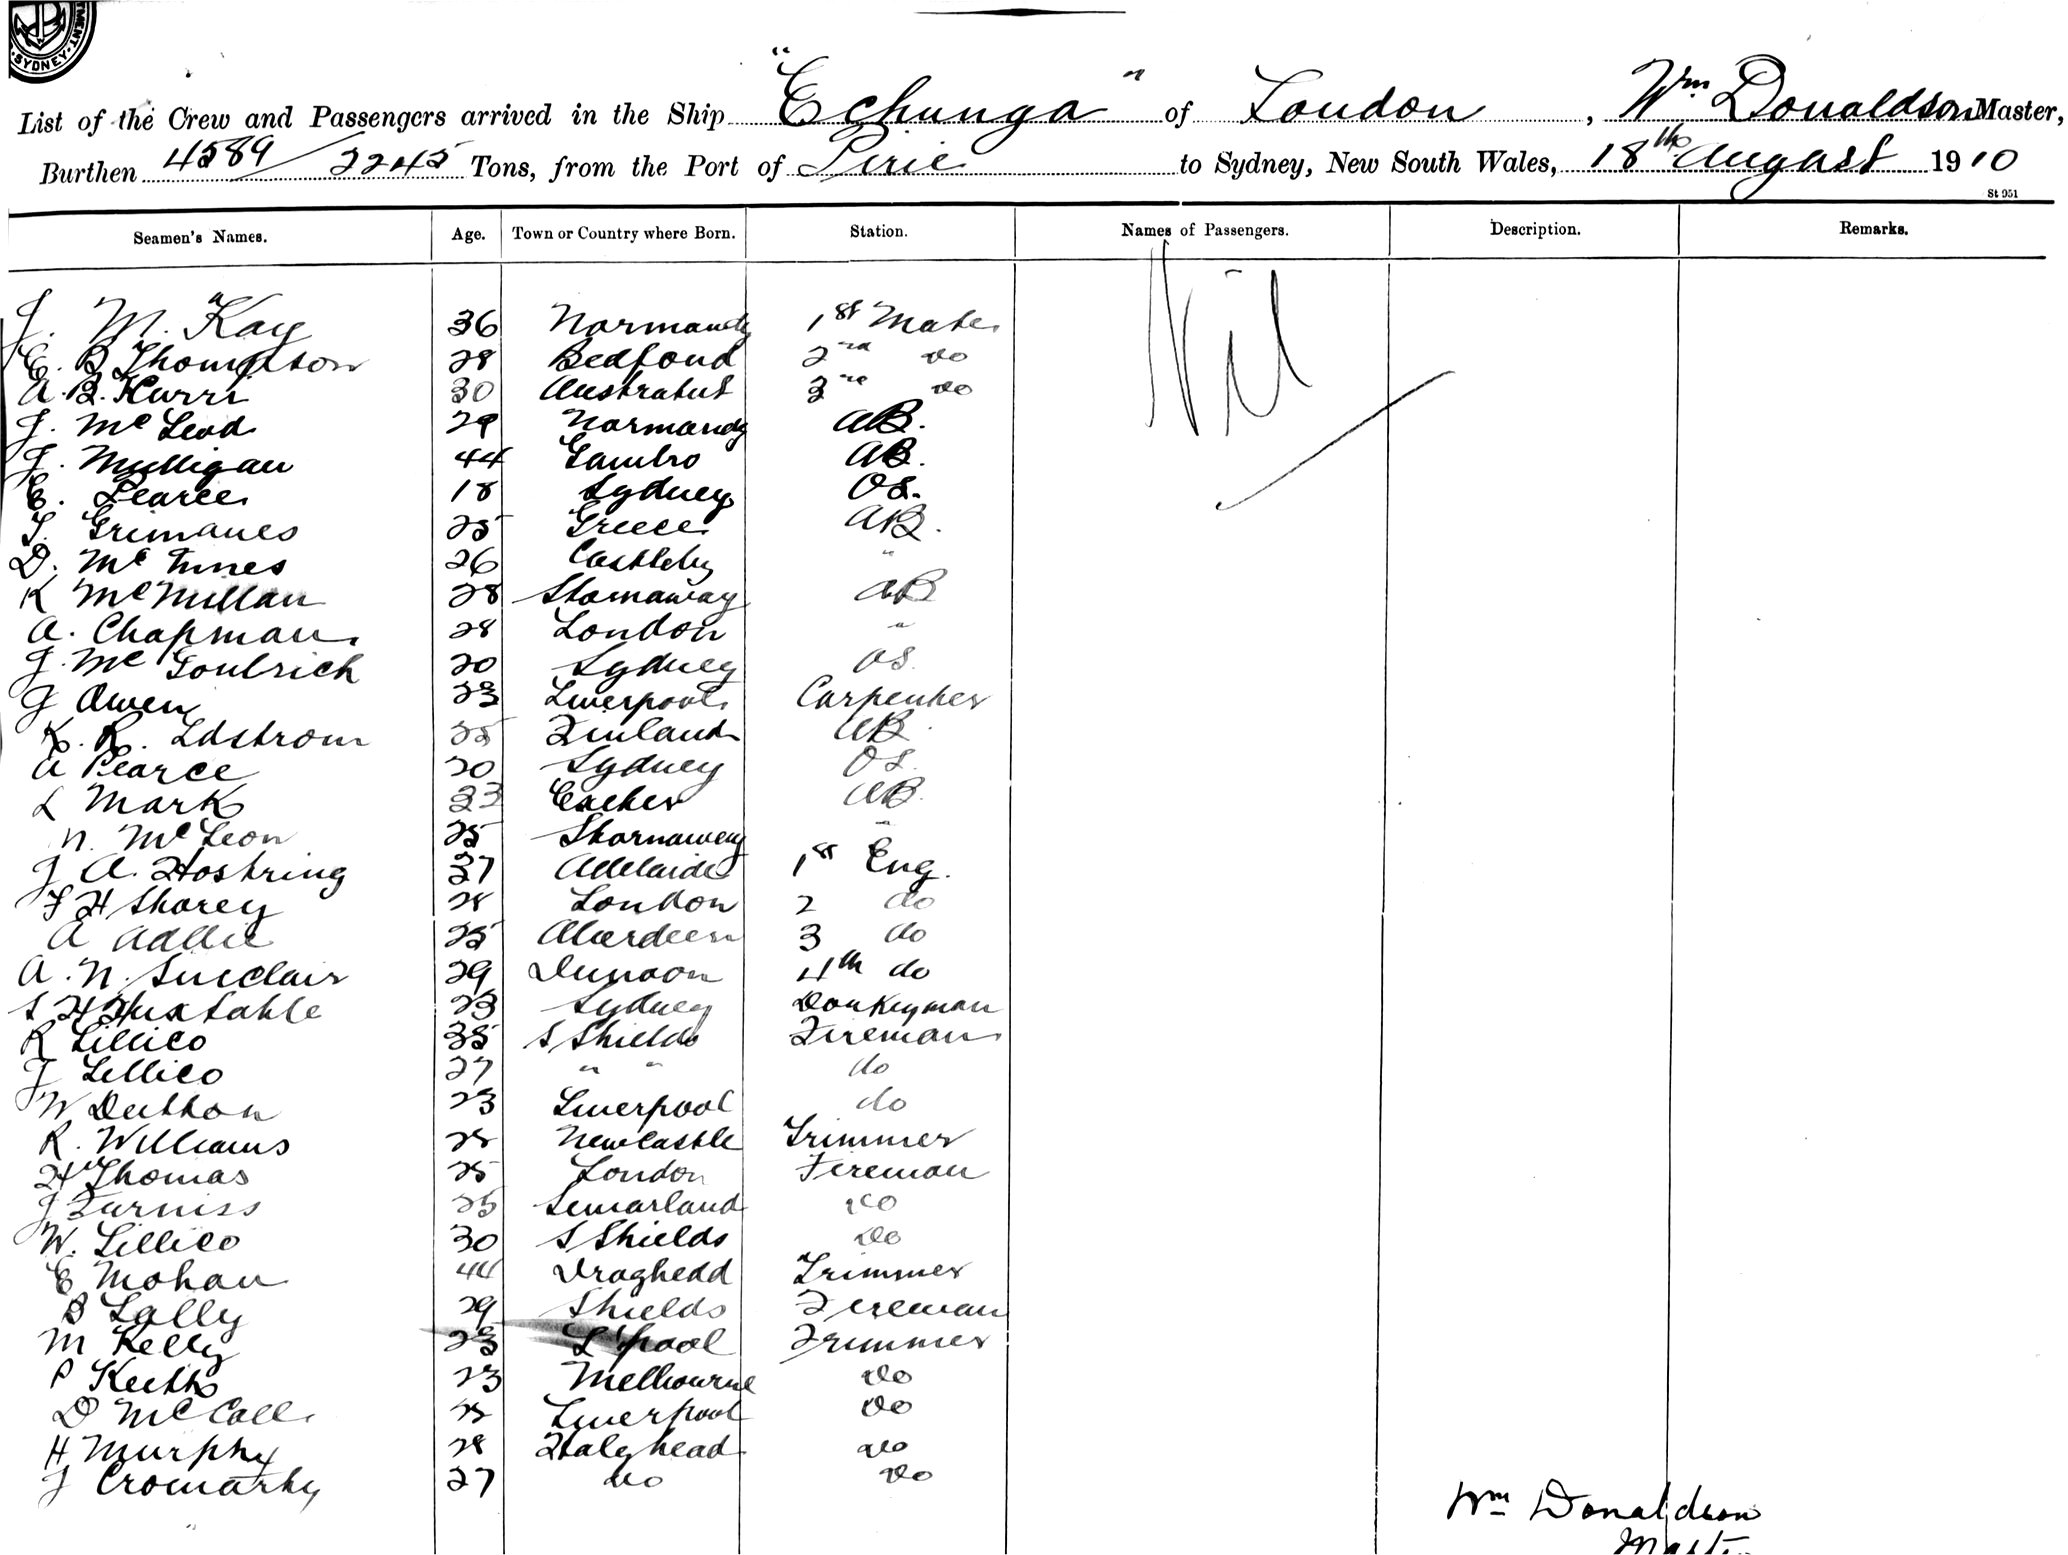 TMENT. SYDNEY.
List of the Crew and Passengers arrived in the Ship "Echunga" of London, Wm Donaldson Master,
Burthen 4589/2245 Tons, from the Port of Pirie to Sydney, New South Wales, 18th August 1910
St 951
Seamen's Names. Age. Town or Country where Born. Station. Names of Passengers. Description. Remarks.
Nil
J. M. Kay 36 Normandy 1st Mate
E. B Thompson 28 Bedford 2nd do
A. B. Kurri 30 3rd do
J. Mc Leod 29 Normandy AB.
J. Mulligan 44 AB.
E. Pearce 18 Sydney OS.
T. Grimanes 25 Greece AB.
D. Mc Innes 26 Castleby "
K McMillan 28 Stornaway AB
A. Chapman 28 London "
J. Mc Goulrich 20 Sydney OS.
J Owen 23 Liverpool Carpenter
K. R. Edstrom 25 Finland AB.
A Pearce 20 Sydney OS.
L Mark 33 AB.
N. Mc Leon 25 Stornaway "
J A. Hosking 37 Adelaide 1st Eng.
F H Shorey 28 London 2 do
A Addie 25 Aberdeen 3 do
A. N. Sinclair 29 Dunoon 4th do
S H Huxtable 23 Sydney Donkeyman
R Lillico 35 S Shields Fireman
J Lillico 27 " " do
W Dutton 23 Liverpool do
R. Williams 25 Newcastle Trimmer
H Thomas 25 London Fireman
J Furniss 25 do
W. Lillico 30 S Shields do
E Mohan 44 Draghedd Trimmer
B Lally 29 Shields Fireman
M Kelly 23 L'pool Trimmer
P Keitts 23 Melbourne do
D McColl 25 Liverpool do
H Murphy 28 Halyhead do
J Cromarty 27 do do
Wm Donaldson
Master